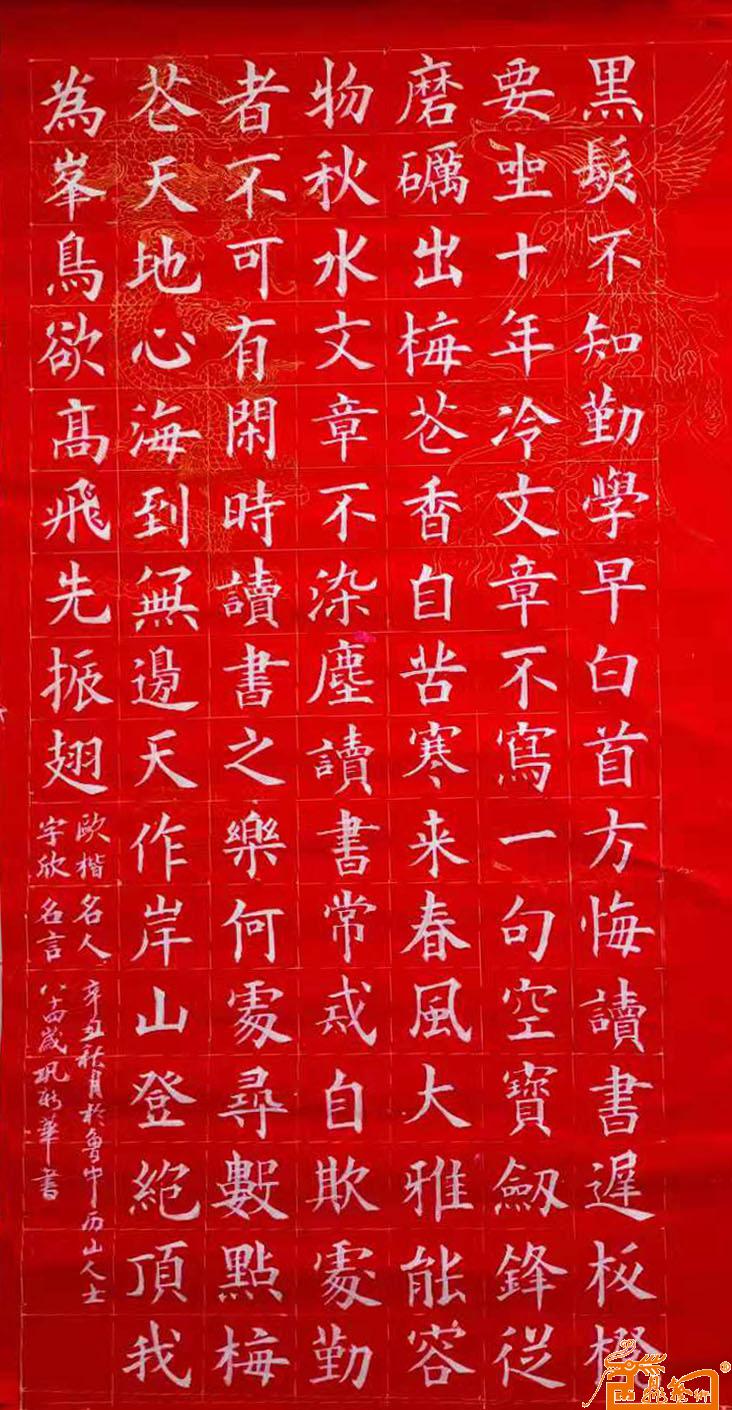 黑髮不知勤學早白首方悔讀書遲板櫈
要坐十年冷文章不寫一句空寶劔鋒從
磨礪出梅花香自苦寒来春風大雅能容
物秋水文章不染塵讀書常戒自欺處勤
者不可有閑時讀書之樂何處尋數點梅
花天地心海到無邊天作岸山登絶頂我
為峯鳥欲高飛先振翅
歐楷名人
字欣名言
辛丑秋月於魯中历山人士
八十四歲巩新華書